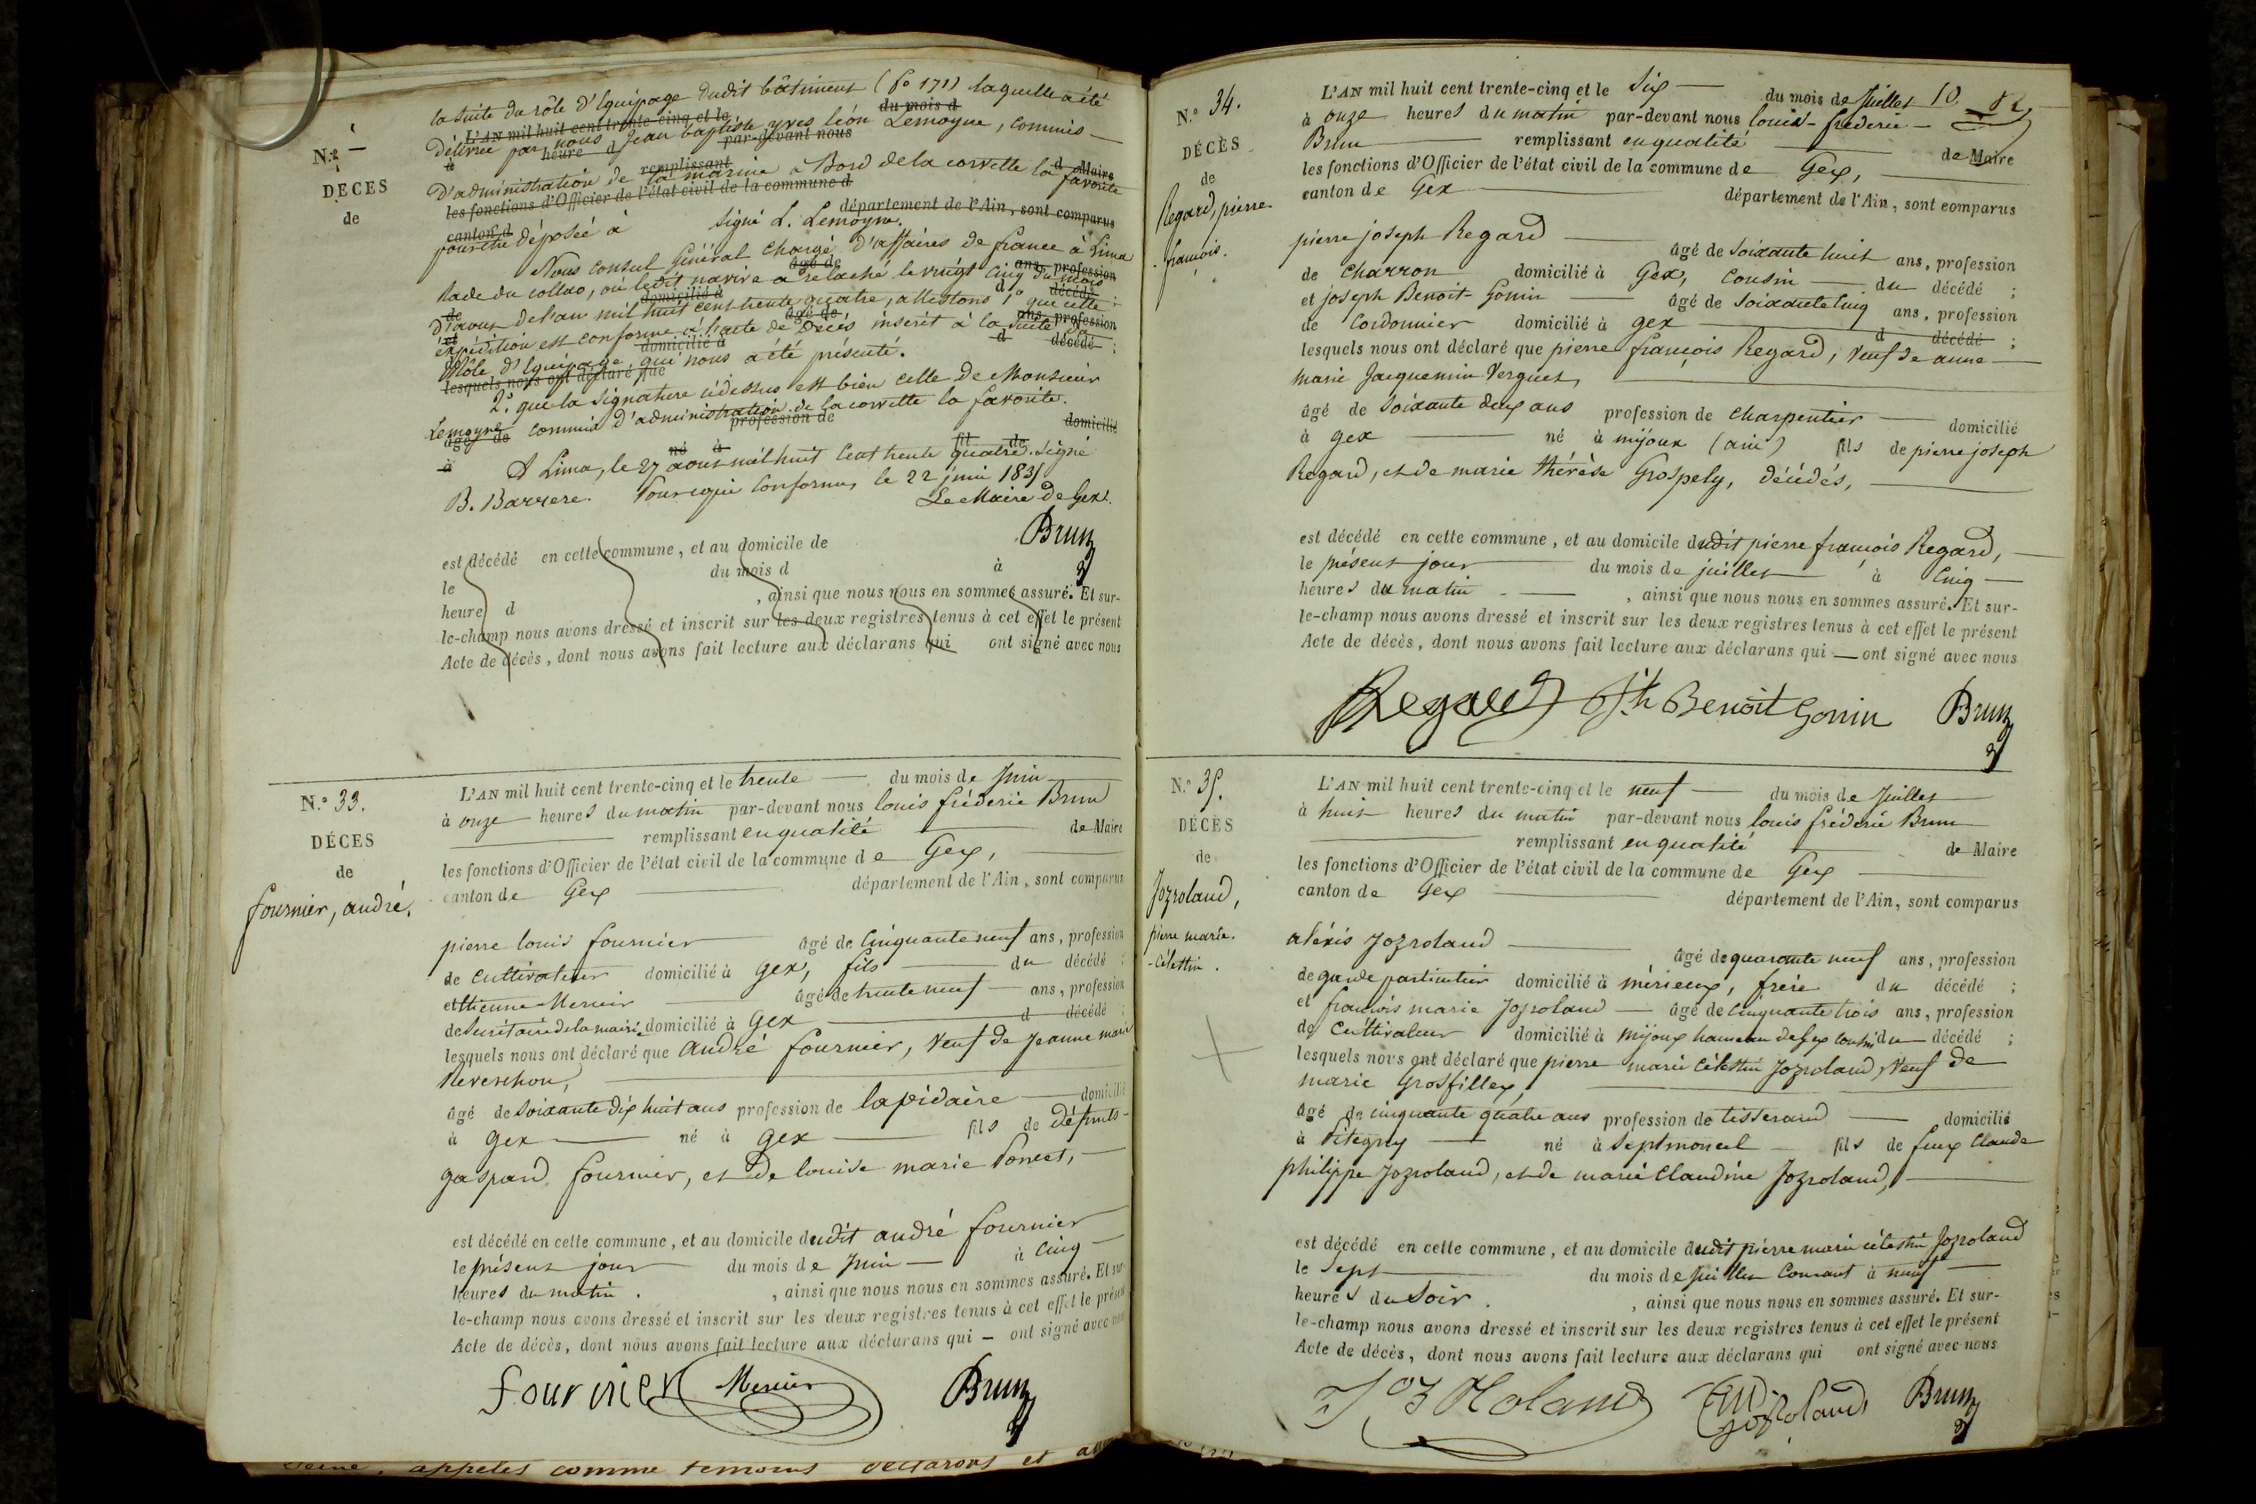 la suite du rôle d'Equipage dudit bâtiment (fo 171) laquelle a été
L'AN mil huit cent trente-cinq et le du mois d
délivrée par nous Jean baptiste yves léon Lemoyne, commis
à heure d par-devant nous
N.º
d'administration de la marine à Bord de la corvette la favorite
remplissant d Maire
DÉCES
les fonctions d'Officier de l'état civil de la commune d
de
canton d département de l'Ain, sont comparus
pour être déposée à signé L. Lemoyne.
Nous consul Général chargé d'affaires de france à Lima
âgé de ans, profession
Rade du collao, où ledit navire a relaché le vingt cinq du mois
de domicilié à d décédé ;
d'aout de l'an mil huit cent trente quatre, attestons 1.º que cette
et âgé de ans, profession
expédition est conforme à l'acte de Décés inscrit à la suite du
de domicilié à d décédé ;
Rôle d'Equipage qui nous a été présenté.
lesquels nous ont déclaré que
2.º que la signature cidessus est bien celle de Monsieur
Lemoyne commis d'administration de la corvette la favorite.
âgé de profession de domicilié
à né à fil de
A Lima, le 27 aout mil huit cent trente quatre. signé
B. Barrere. Pour copie conforme, le 22 juin 1835
Le Maire de Gex.
Brun
est décédé en cette commune, et au domicile de
le du mois d à
heure d , ainsi que nous nous en sommes assuré. Et sur-
le-champ nous avons dressé et inscrit sur les deux registres tenus à cet effet le présent
Acte de décès, dont nous avons fait lecture aux déclarans qui ont signé avec nous
N.º 33.
DÉCES
de
fournier, andré.
L'AN mil huit cent trente-cinq et le trente du mois de Juin
à onze heures du matin par-devant nous louis fréderic Brun
remplissant en qualité de Maire
les fonctions d'Officier de l'état civil de la commune de Gex,
canton de Gex département de l'Ain, sont comparus
pierre louis fournier âgé de cinquante neuf ans, profession
de cultivateur domicilié à Gex, fils du décédé ;
et Etienne Mercier âgé de trente neuf ans, profession
de Secrétaire de la mairie domicilié à Gex d décédé ;
lesquels nous ont déclaré que andré fournier, veuf de Jeanne marie
Reverchon,
âgé de soixante dix huit ans profession de lapidaire domicilié
à Gex né à Gex fils de défunts
gaspard fournier, et de louise marie Poncet,
est décédé en cette commune, et au domicile dudit andré fournier
le présent jour du mois de Juin à cinq
heures du matin. , ainsi que nous nous en sommes assuré. Et sur-
le-champ nous avons dressé et inscrit sur les deux registres tenus à cet effet le présent
Acte de décès, dont nous avons fait lecture aux déclarans qui ont signé avec nous
fournier Mercier Brun
appelés comme temoins declarons et
N.º 34.
DÉCÈS
de
Regard, pierre
françois.
L'AN mil huit cent trente-cinq et le Six du mois de Juillet 10
à onze heures du matin par-devant nous louis-frederic
Brun remplissant en qualité de Maire
les fonctions d'Officier de l'état civil de la commune de Gex,
canton de Gex département de l'Ain, sont comparus
pierre joseph Regard âgé de soixante huit ans, profession
de charron domicilié à Gex, cousin du décédé ;
et joseph Benoit-Gonin âgé de soixante cinq ans, profession
de Cordonnier domicilié à gex d décédé ;
lesquels nous ont déclaré que pierre françois Regard, veuf de anne
marie Jacquemin Verguet,
âgé de soixante deux ans profession de charpentier domicilié
à gex né à mijoux (ain) fils de pierre joseph
Regard, et de marie thérèse Grospely, décédés,
est décédé en cette commune, et au domicile dudit pierre françois Regard,
le présent jour du mois de juillet à cinq
heures du matin , ainsi que nous nous en sommes assuré. Et sur-
le-champ nous avons dressé et inscrit sur les deux registres tenus à cet effet le présent
Acte de décès, dont nous avons fait lecture aux déclarans qui ont signé avec nous
Regard Jph Benoit Gonin Brun
N.º 35.
DÉCÈS
de
Jozroland,
pierre marie
-Célestin.
L'AN mil huit cent trente-cinq et le neuf du mois de Juillet
à huit heures du matin par-devant nous louis fréderic Brun
remplissant en qualité de Maire
les fonctions d'Officier de l'état civil de la commune de Gex
canton de Gex département de l'Ain, sont comparus
aléxis Jozroland âgé de quarante neuf ans, profession
de garde particulier domicilié à mérieux, frère du décédé ;
et françois marie Jozroland âgé de cinquante trois ans, profession
de Cultivateur domicilié à mijoux hameau de Gex cousin du décédé ;
lesquels nous ont déclaré que pierre marie célestin Jozroland, veuf de
marie Grosfilley,
âgé de cinquante quatre ans profession de tisserand domicilié
à Pitegny né à Septmoncel fils de feux Claude
philippe Jozroland, et de marie Claudine Jozroland,
est décédé en cette commune, et au domicile dudit pierre marie célestin Jozroland
le Sept du mois de juillet Courant à neuf
heures du Soir. , ainsi que nous nous en sommes assuré. Et sur-
le-champ nous avons dressé et inscrit sur les deux registres tenus à cet effet le présent
Acte de décès, dont nous avons fait lecture aux déclarans qui ont signé avec nous
Joz Roland Jozroland Brun